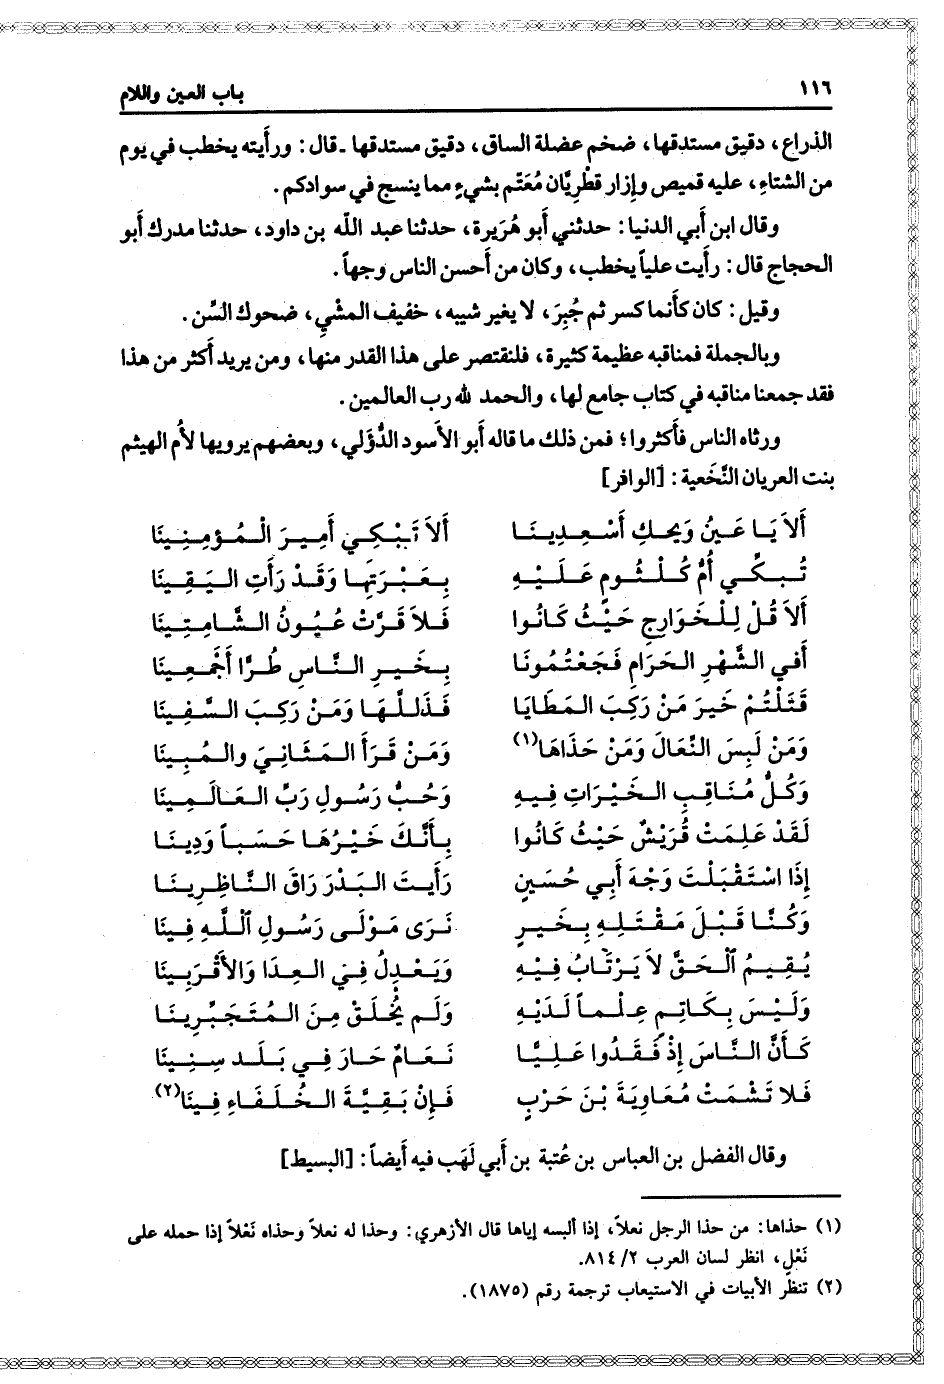 ١١٦
باب العين واللام
الذراع، دقيق مستدقها، ضخم عضلة الساق، دقيق مستدقها ـ قال: ورأيته يخطب في يوم
من الشتاءِ، عليه قميص وإزار قطْرِيَّان مُعَتَم بشيءٍ مما ينسج في سوادكم.
وقال ابن أبي الدنيا: حدثني أبو هُرَيرة، حدثنا عبد الله بن داود، حدثنا مدرك أبو
الحجاج قال: رأيت علياً يخطب، وكان من أحسن الناس وجهاً.
وقيل: كان كأنما كسر ثم جُبِرَ، لا يغير شيبه، خفيف المشْيِ، ضحوك السِّن.
وبالجملة فمناقبه عظيمة كثيرة، فلنقتصر على هذا القدر منها، ومن يريد أكثر من هذا
فقد جمعنا مناقبه في كتاب جامع لها، والحمد لله رب العالمين.
ورثاه الناس فأكثروا؛ فمن ذلك ما قاله أبو الأسود الدُّؤَلي، وبعضهم يرويها لأم الهيثم
بنت العريان النَّخَعية: [الوافر]
أَلاَ يَا عَيـنُ وَيحكِ أَسْعِدِينَـا أَلاَ تَبْكِي أَمِيرَ الْمُؤمِنِينَا
تُبكِّي أُمُّ كُلْثُومٍ عَلَيْهِ بِعَبْرَتِهَا وَقَدْ رَأَتِ اليَقِينَا
أَلاَ قُلْ لِلْخَوَارِجِ حَيْثُ كَانُوا فَلاَ قَرَّتْ عُيُونُ الشَّامِتِينَا
أَفي الشَّهْرِ الحَرَامِ فَجَعْتُمُونَا بِخَيرِ النَّاسِ طُرًّا أَجْمَعِينَا
قَتَلْتُمْ خَيرَ مَنْ رَكِبَ المَطَايَا فَذَلَّلَهَا وَمَنْ رَكِبَ السَّفِينَا
وَمَنْ لَبِسَ النِّعَالَ وَمَنْ حَذَاهَا(١) وَمَنْ قَرَأَ المَثَانِيَ والمُبِينَا
وَكُلُّ مُنَاقِبِ الخَيْرَاتِ فِيهِ وَحُبُّ رَسُولِ رَبِّ العَالَمِينَا
لَقَدْ عَلِمَتْ قُرَيْشٌ حَيْثُ كَانُوا بِأَنَّكَ خَيْرُهَا حَسَباً وَدِينَا
إِذَا اسْتَقْبَلْتَ وَجْهَ أَبِي حُسَينٍ رَأَيتَ البَدْرَ رَاقَ النَّاظِرِينَا
وَكُنَّا قَبْلَ مَقْتَلِهِ بِخَيرٍ نَرَى مَوْلَى رَسُولِ ٱللَّهِ فِينَا
يُقِيمُ ٱلحَقَّ لاَ يَرْتَابُ فِيْهِ وَيَعْدِلُ فِي العِدَا وَالأَقْرَبِينَا
وَلَيْسَ بِكَاتِمٍ عِلْماً لَدَيْهِ وَلَم يُخْلَقْ مِنَ المُتَجَبِّرِينَا
كَأَنَّ النَّاسَ إِذْ فَقَدُوا عَلِيًّا نَعَامٌ حَارَ فِي بَلَدٍ سِنِينَا
فَلا تَشْمَتْ مُعَاوِيَةَ بْنَ حَرْبٍ فَإِنْ بَقِيَّةَ الخُلَفَاءِ فِينَا(٢)
وقال الفضل بن العباس بن عُتبة بن أَبي لَهَب فيه أيضاً: [البسيط]
(١) حذاها: من حذا الرجل نعلاً، إذا ألبسه إياها قال الأزهري: وحذا له نعلاً وحذاه نَعْلاً إذا حمله على
نَعْلٍ، انظر لسان العرب ٢/ ٨١٤.
(٢) تنظر الأبيات في الاستيعاب ترجمة رقم (١٨٧٥).